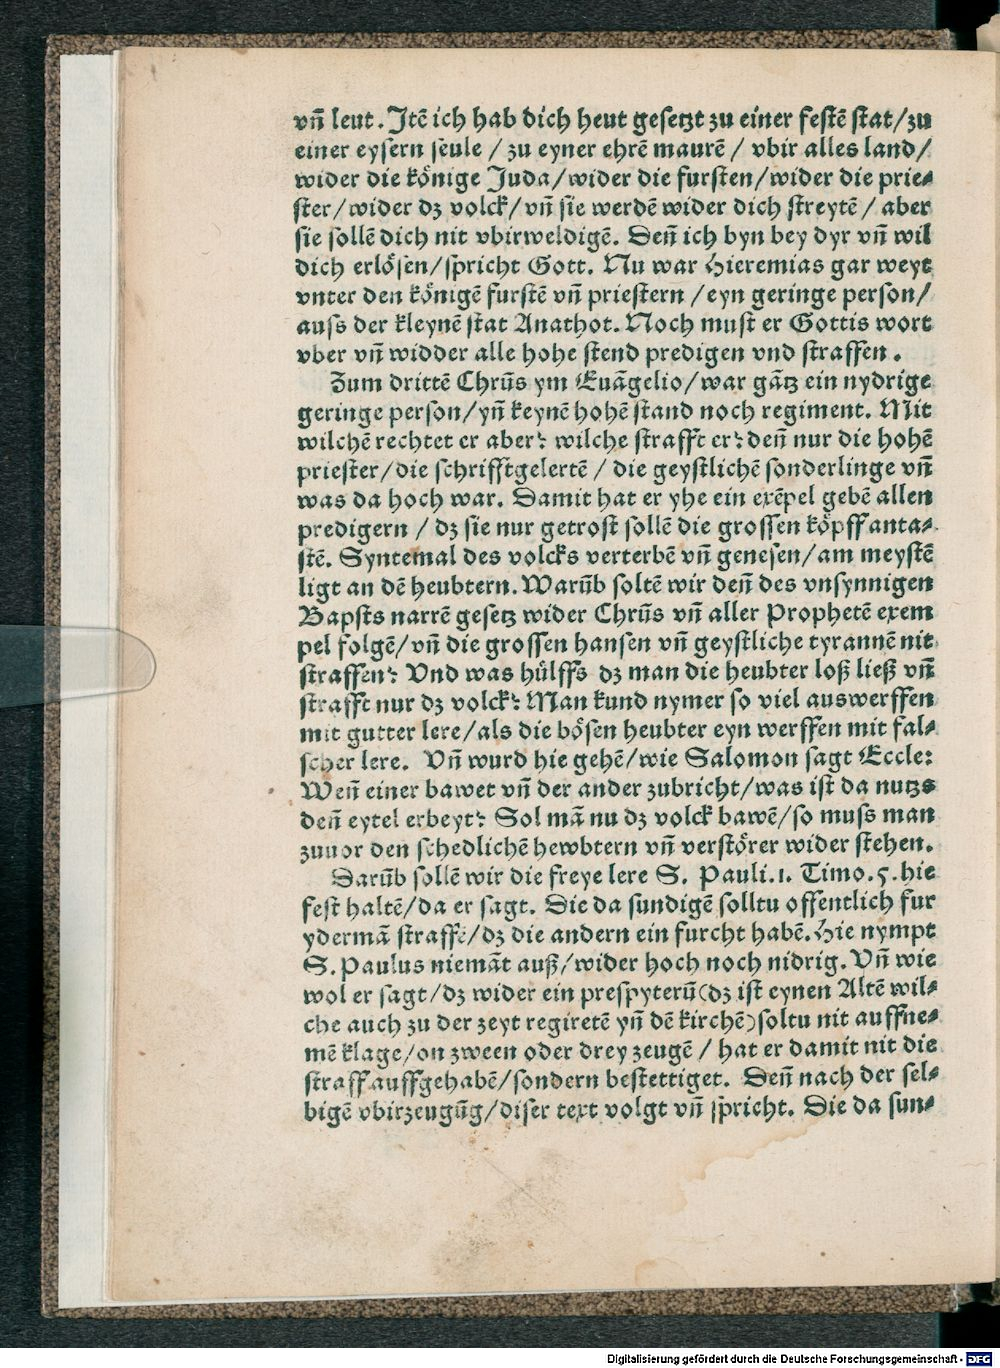 vn̄ leut. Jtē ich hab dich heut gesetzt zu einer festē stat/zu
einer eysern seule / zu eyner ehrē maurē / vbir alles land/
wider die kōnige Juda/wider die fursten/wider die prie⸗
ster/wider dz volck/vn̄ sie werdē wider dich streytē / aber
sie sollē dich nit vbirweldigē. Den̄ ich byn bey dyr vn̄ wil
dich erlösen/spricht Gott. Nu war Hieremias gar weyt
vnter den königē furstē vn̄ priestern /eyn geringe person/
auss der kleynē stat Anathot. Noch must er Gottis wort
vber vn̄ widder alle hohe stend predigen vnd straffen.
Zum drittē Chrūs ym Euāgelio/war gātz ein nydrige
geringe person/yn̄ keynē hohē stand noch regiment. Mit
wilchē rechtet er aber? wilche strafft er? den̄ nur die hohē
priester/die schrifftgelertē / die geystlichē sonderlinge vn̄
was da hoch war. Damit hat er yhe ein exēpel gebē allen
predigern / dz sie nur getrost sollē die grossen köpff anta⸗
stē. Syntemal des volcks verterbē vn̄ genesen/am meystē
ligt an dē heubtern. Warūb soltē wir den̄ des vnsynnigen
Bapsts narrē gesetz wider Chrūs vn̄ aller Prophetē exem
pel folgē/vn̄ die grossen hansen vn̄ geystliche tyrannē nit
straffen? Vnd was hülffs dz man die heubter loß ließ vn̄
strafft nur dz volck? Man kund nymer so viel auswerffen
mit gutter lere/als die bösen heubter eyn werffen mit fal⸗
scher lere. Vn̄ wurd hie gehē/wie Salomon sagt Eccle:
Wen̄ einer bawet vn̄ der ander zubricht/was ist da nutzs
den̄ eytel erbeyt? Sol mā nu dz volck bawē/so muss man
zuuor den schedlichē hewbtern vn̄ verstörer wider stehen.
Darūb sollē wir die freye lere S. Pauli.1. Timo.5.hie
fest haltē/da er sagt. Die da sundigē solltu offentlich fur
ydermā straffē/dz die andern ein furcht habē. Hie nympt
S. Paulus niemāt auß/wider hoch noch nidrig. Vn̄ wie
wol er sagt/dz wider ein prespyterū(dz ist eynen Altē wil⸗
che auch zu der zeyt regiretē yn̄ dē kirchē)soltu nit auffne⸗
mē klage/on zween oder drey zeugē / hat er damit nit die
straff auffgehabē/sondern bestettiget. Den̄ nach der sel⸗
bigē vbirzeugūg/diser text volgt vn̄ spricht. Die da sun⸗
Digitalisierung gefördert durch die Deutsche Forschungsgemeinschaft - DFG